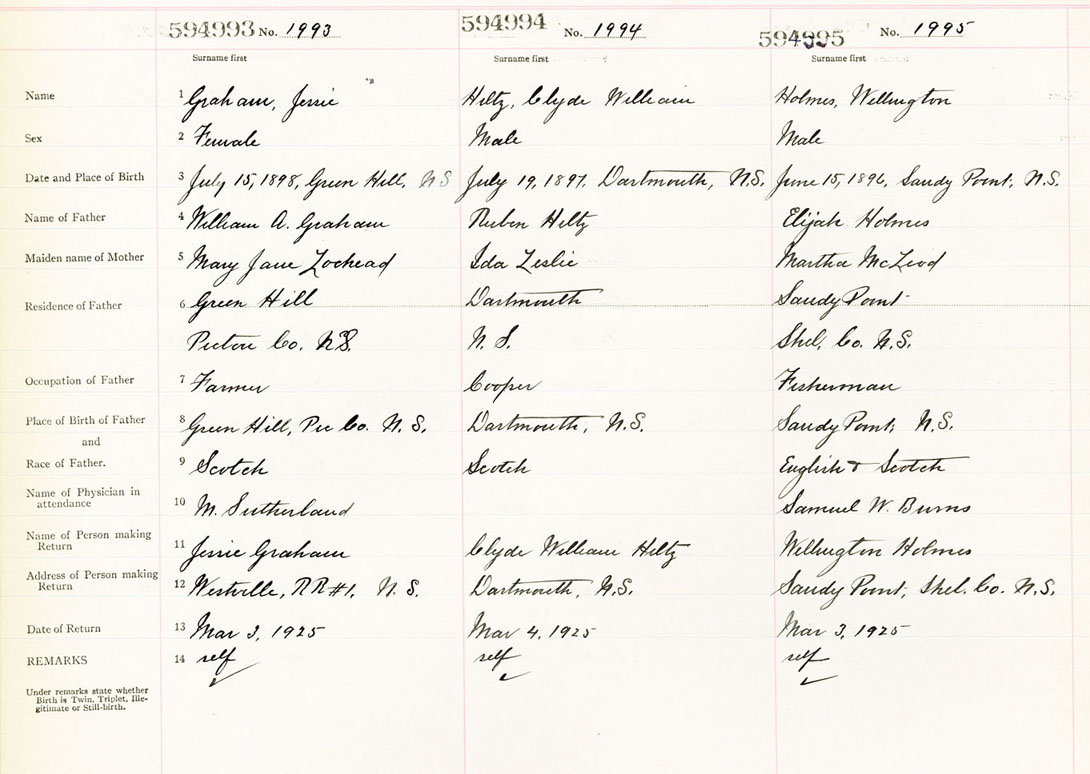 594993 No. 1993 594994 No. 1994 594995 No. 1995
Surname first Surname first Surname first
Name 1 Graham, Jessie Hiltz, Clyde William Holmes, Wellington
Sex 2 Female Male Male
Date and Place of Birth 3 July 15, 1898, Green Hill, N S July 19, 1897, Dartmouth, N.S. June 15, 1896, Sandy Point, N.S.
Name of Father 4 William A. Graham Reuben Hiltz Elijah Holmes
Maiden name of Mother 5 Mary Jane Lochead Ida Leslie Martha McLeod
Residence of Father 6 Green Hill Dartmouth Sandy Point
Pictou Co. N.S. N. S. Shel. Co. N.S.
Occupation of Father 7 Farmer Cooper Fisherman
Place of Birth of Father 8 Green Hill, Pic Co. N. S. Dartmouth, N.S. Sandy Point, N.S.
and
Race of Father. 9 Scotch Scotch English & Scotch
Name of Physician in
attendance 10 M. Sutherland Samuel W. Burns
Name of Person making
Return 11 Jessie Graham Clyde William Hiltz Wellington Holmes
Address of Person making
Return 12 Westville, RR#1, N. S. Dartmouth, N.S. Sandy Point, Shel. Co. N.S.
Date of Return 13 Mar 3, 1925 Mar 4, 1925 Mar 3, 1925
REMARKS 14 self self self
Under remarks state whether
Birth is Twin, Triplet, Ille-
gitimate or Still-birth.